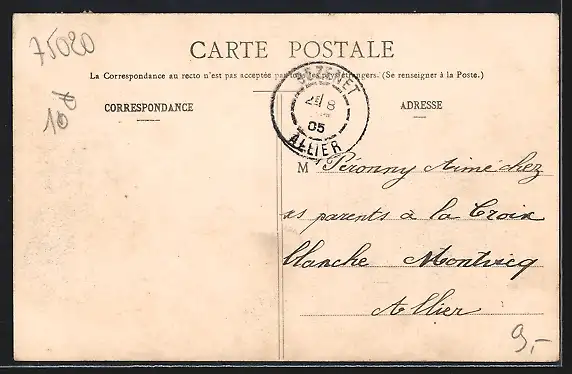 75020
CARTE POSTALE
La Correspondance au recto n'est pas acceptée par tous les pays étrangers. (Se renseigner à la Poste.)
CORRESPONDANCE
ADRESSE
BEZENET
2E/8
05
ALLIER
M Péronny Aimé chez
ses parents à la Croix
blanche Montvicq
Allier
9,-